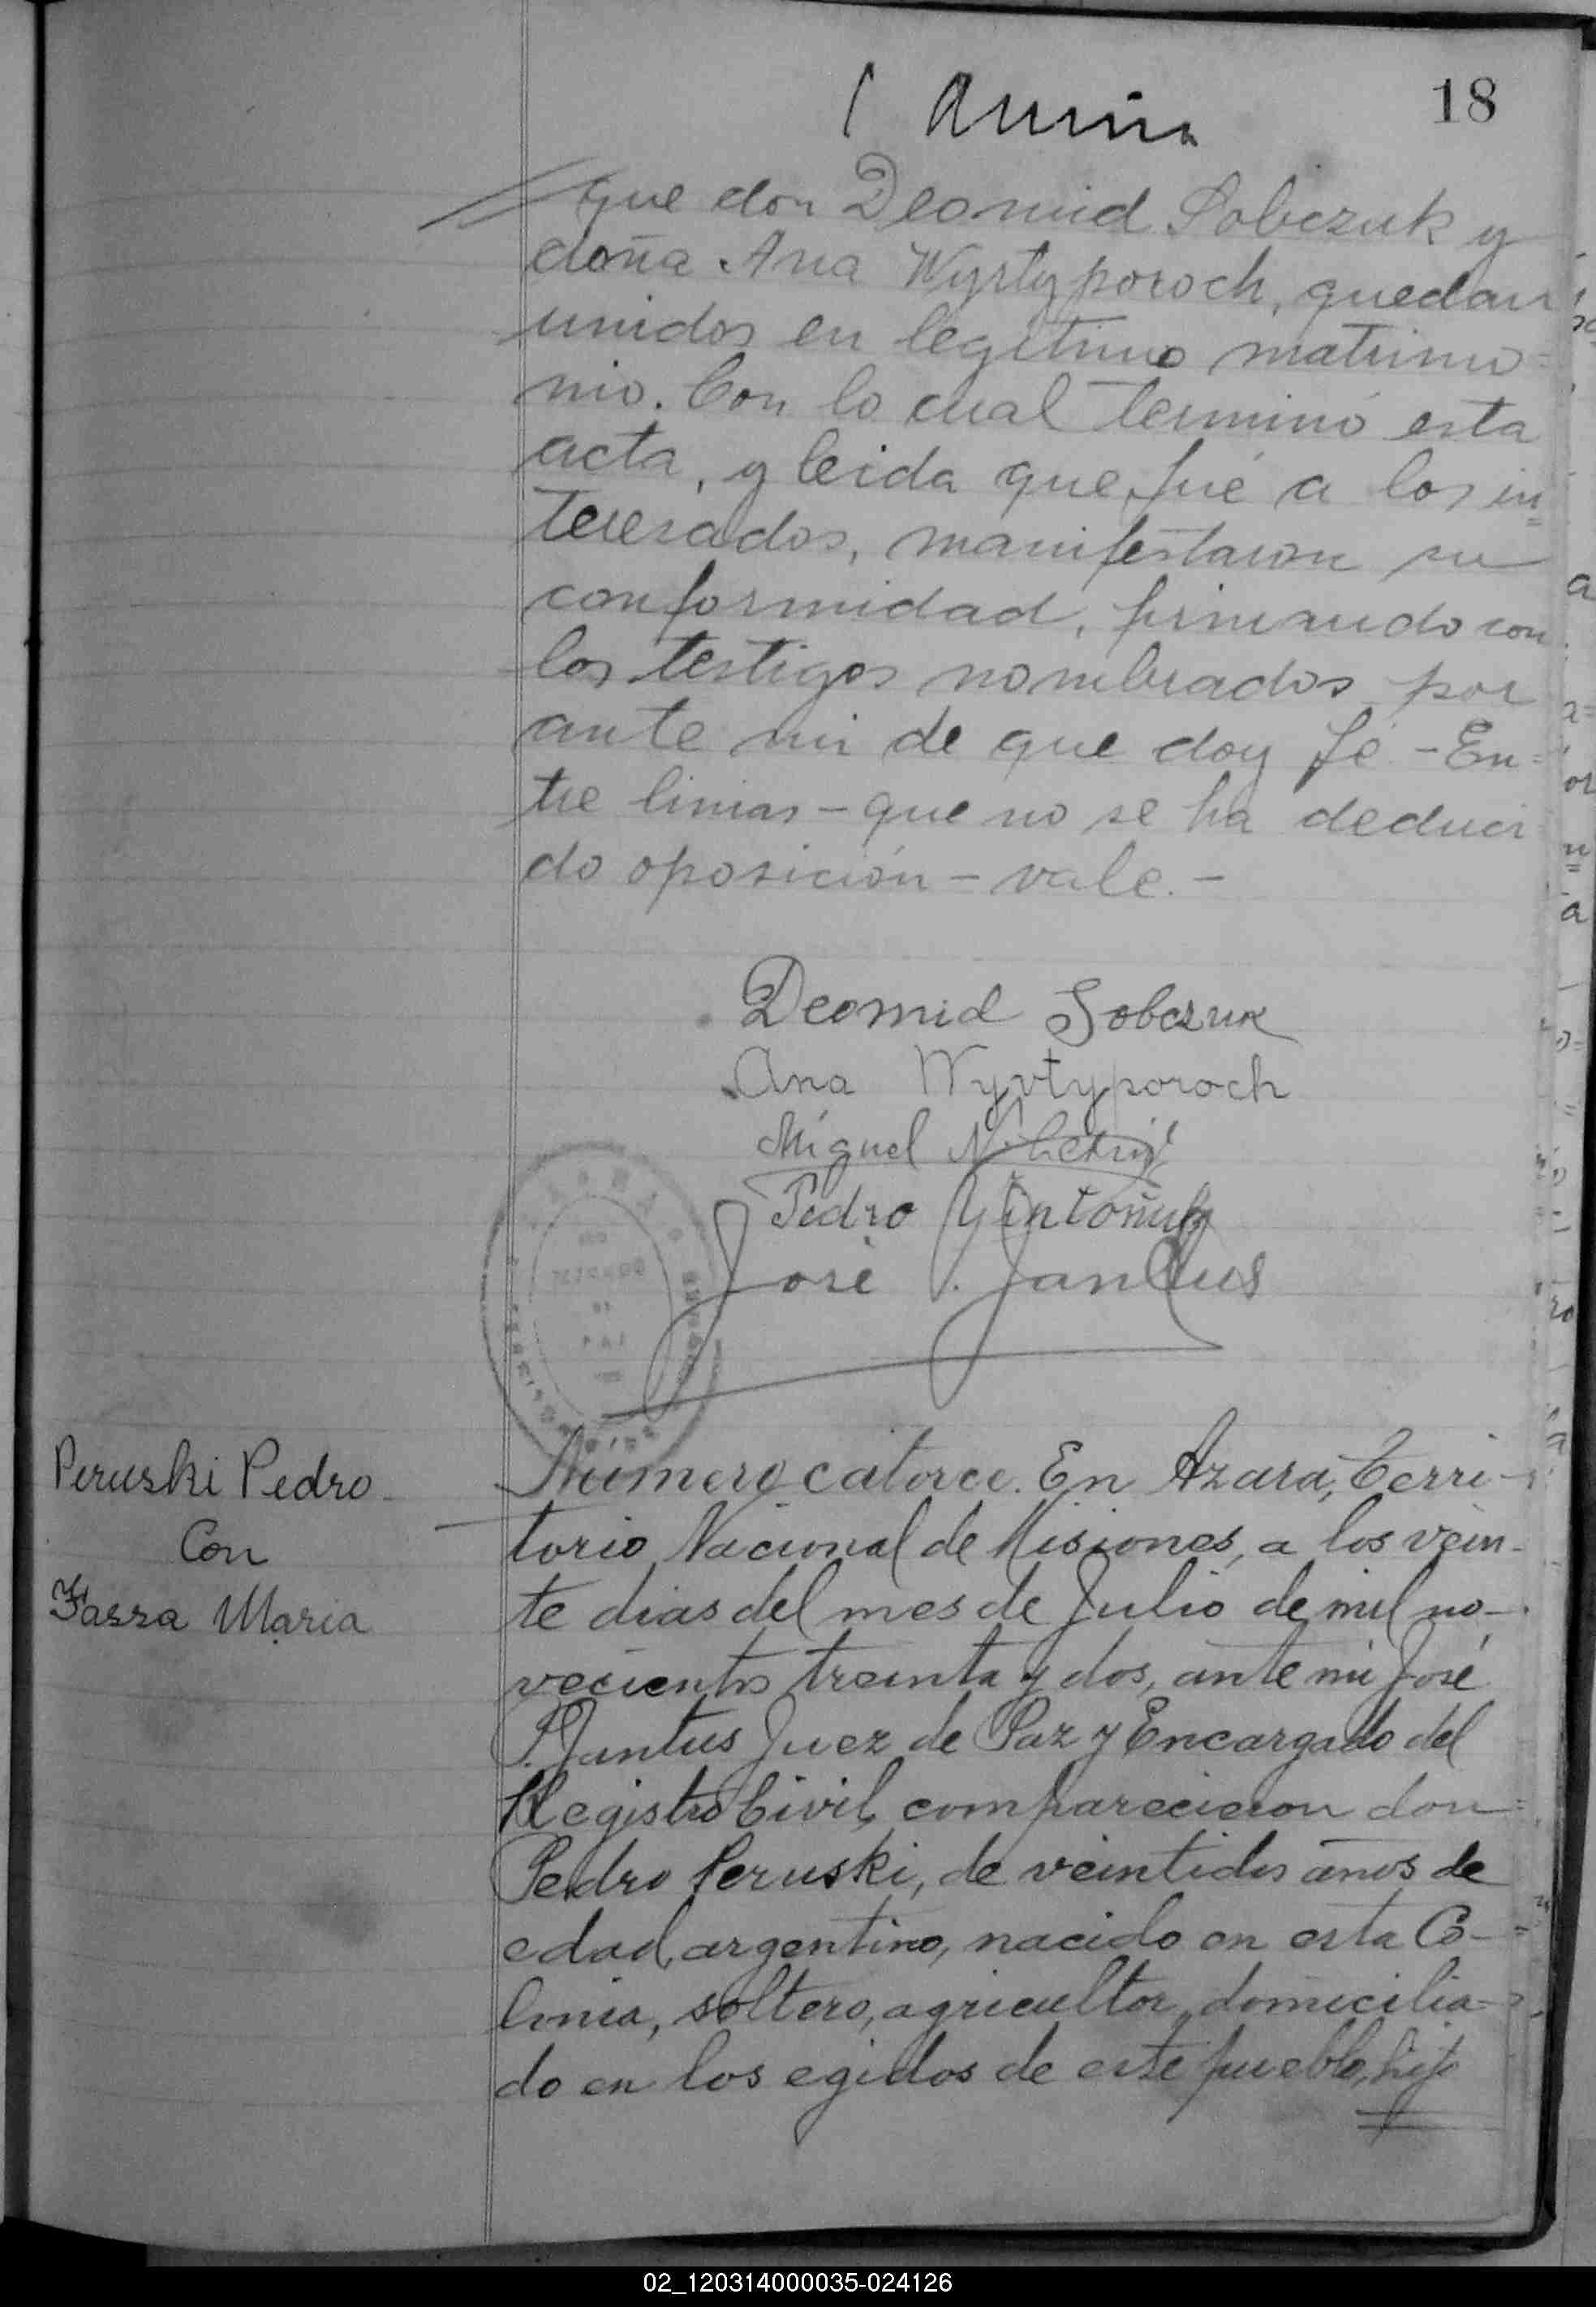 18
que don Deomid Sobczuk y
doña Ana Wyrtyporoch, quedan
unidos en legitimo matrimo=
nio. Con lo cual terminó esta
acta, y leida que fué a los in=
teresados, manifestaron su
conformidad, firmando con
los testigos nombrados por
ante mi de que doy fé - En=
tre linias - que no se ha deduci
do oposición - vale. -
Deomid Sobczuk
Ana Wyrtyporoch
Miguel
Pedro
José P. Jantus
Peruski Pedro
Con
Fassa Maria
Número catorce. En Azara, Terri-
torio Nacional de Misiones, a los vein-
te dias del mes de Julio de mil no-
vecientos treinta y dos, ante mi José
P. Jantus Juez de Paz y Encargado del
Registro Civil, comparecieron don
Pedro Peruski, de veintidos años de
edad, argentino, nacido en esta Co-
lonia, soltero, agricultor, domicilia-
do en los egidos de este pueblo, hijo
02_120314000035-024126